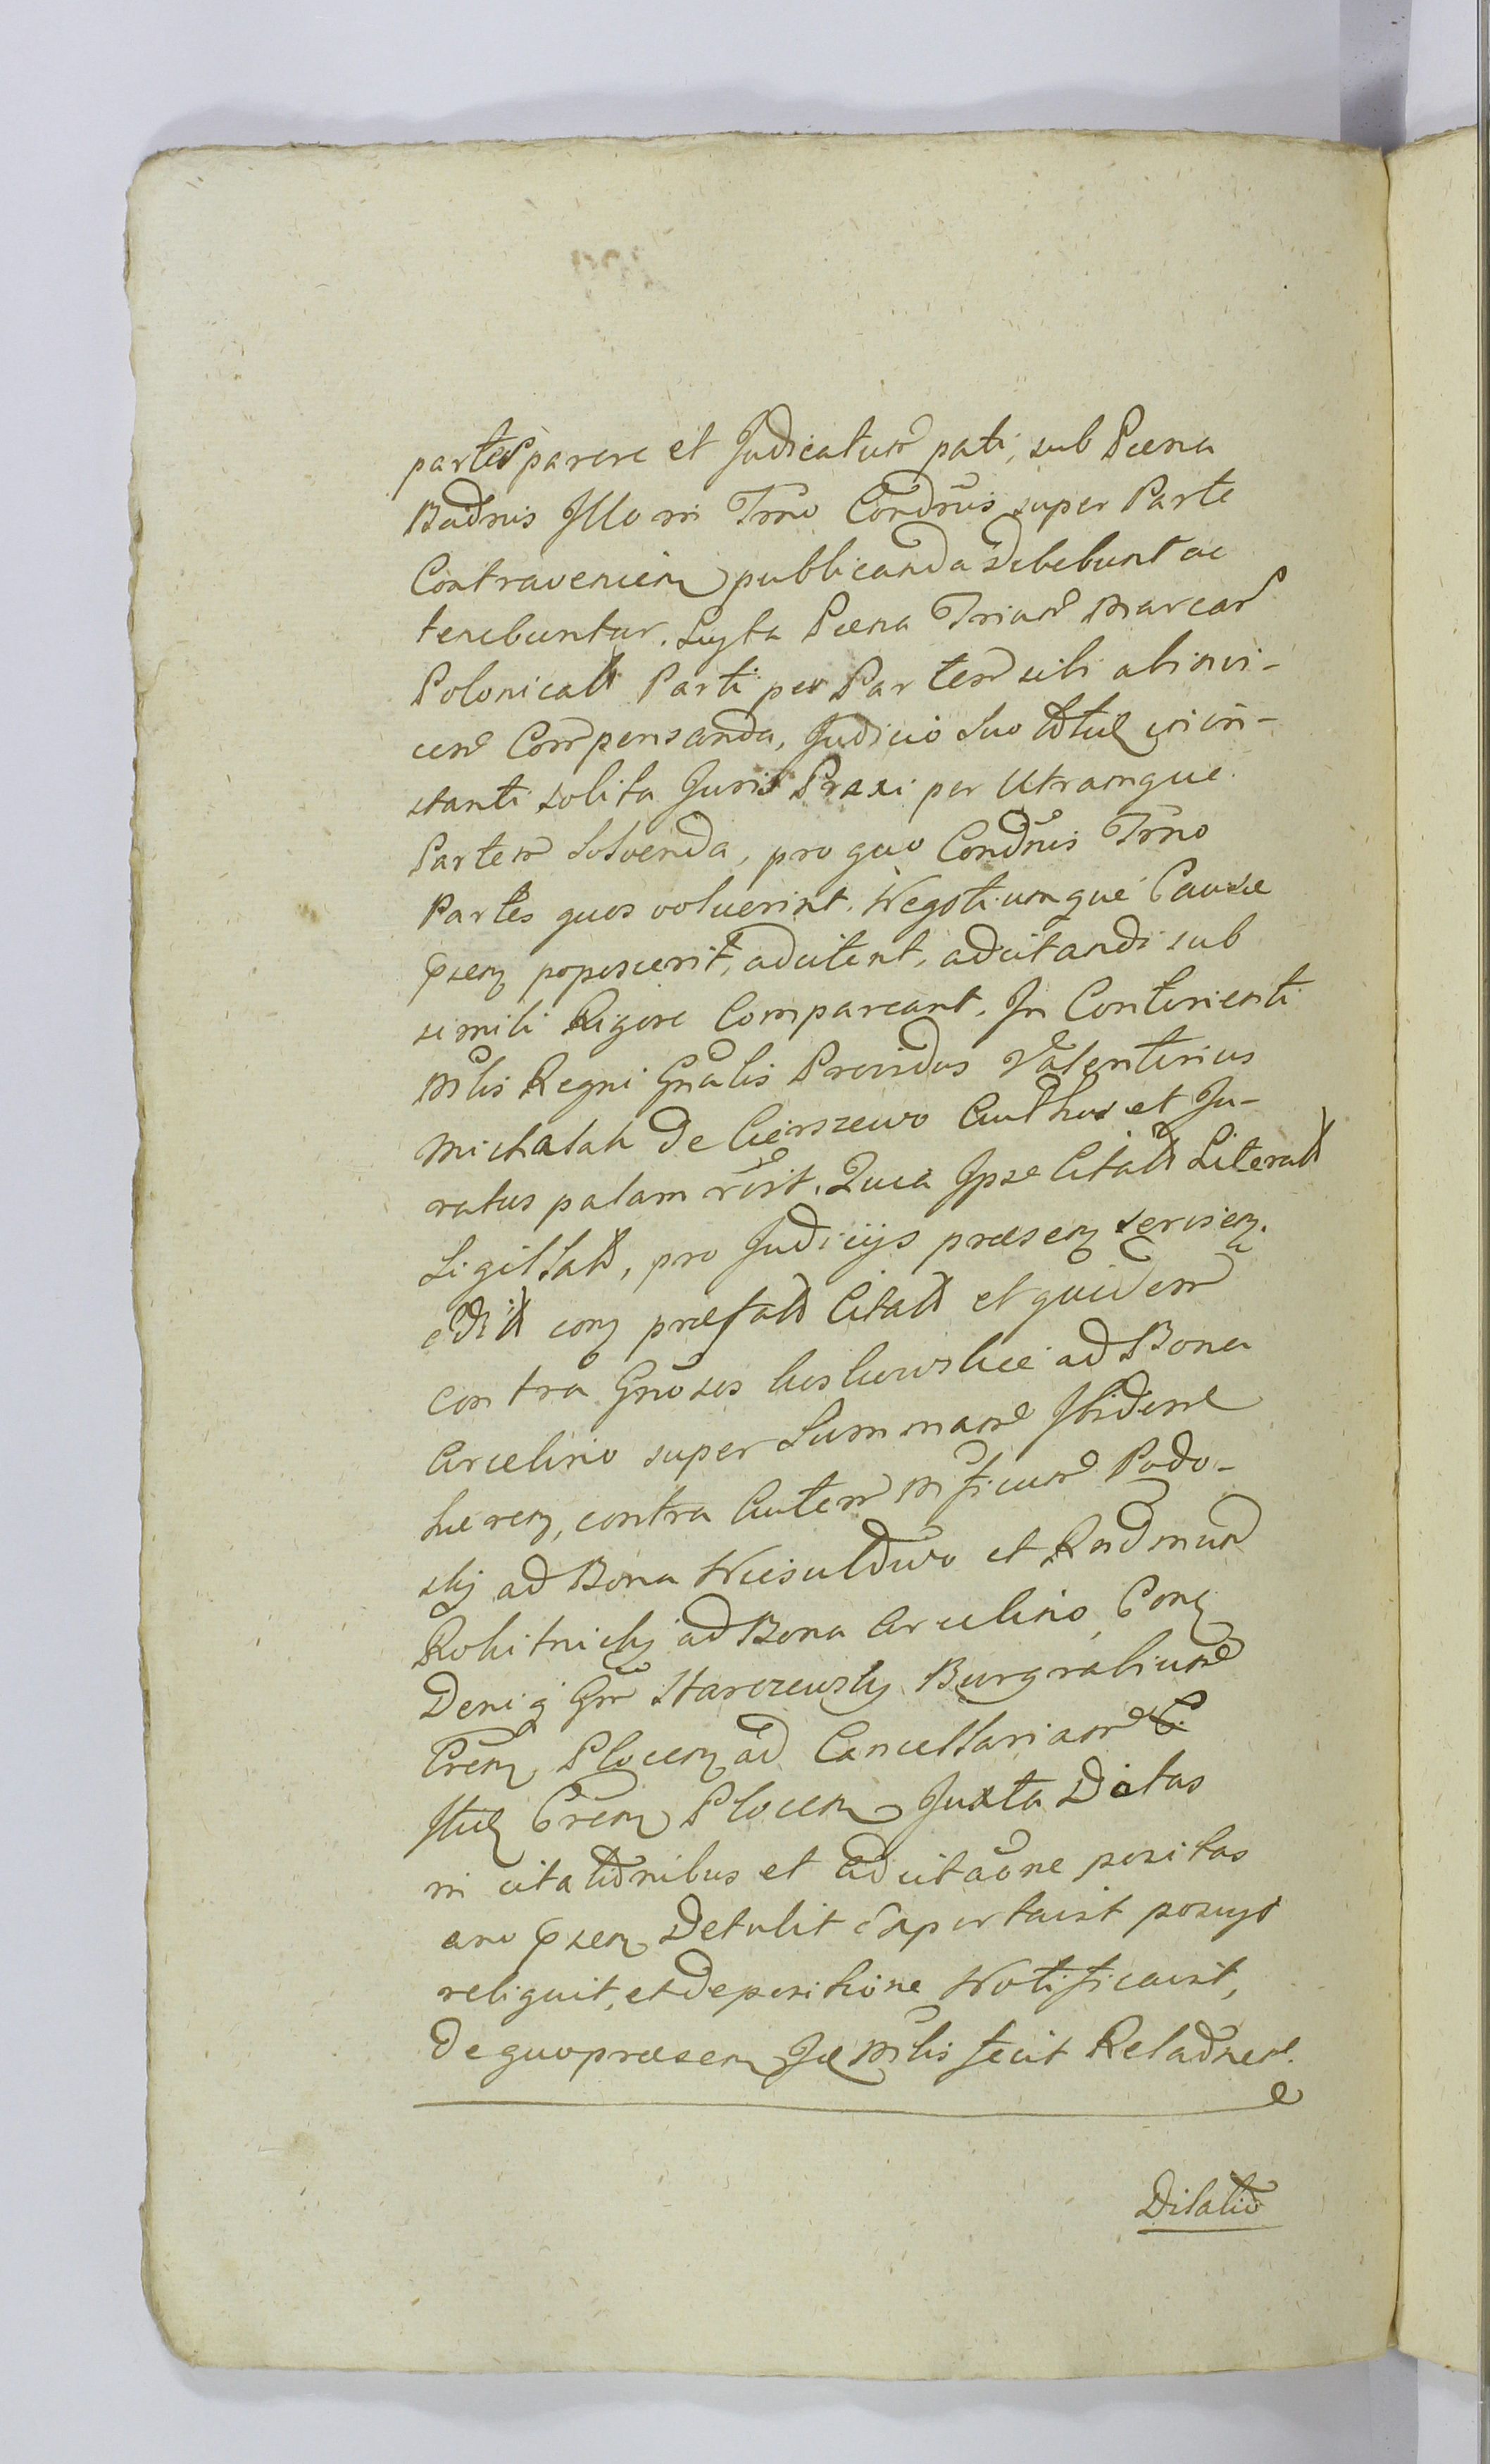 partes parere et Judicatum pati, sub Pæna
Baōnis Illo in Trno Condnis super Parte
Contravenien publicanda debebunt ac
tenebuntur. Luyta Pæna Trium Marcar
Polonicals Parti per Partem sibi abinvi-
cem Compensanda, Judicio suo in in-
stanti solita Juris Praxi per Utramque
Partem Solvenda, pro quo Condnis Trno
Partes quos voluerint. Negotiumque Causæ
pñsen poposcerit, adcitent, adcitandi sub
simili Rigore Compareant. In Continenti
Mlis Regni Gnalis Providus Valentinus
Michalak de Cierszewo Authus et Ju-
ratus palam rōit. Quia Ipse Citals Literals
Sigillals, pro Judicijs præsen servien.
edils con præfals Citals et quidem
contra Gnosos ad Bona
Arcelino super Summam Ibidem
hæren, contra Autem Mficum Podo-
skj ad Bona et Rndmum
Rokitnickj ad Bona Arcelino, Con
Deniq Gm Starczewskj Burgrabium
Cren Plocen ad Cancellariam
Cren Plocen Juxta Datas
in citationibus et adcitaōne positas
ano pñsen Detulit Apportavit posuyt
reliquit, et depositione Notificavit,
De quo præsen Mlis fecit Relaōnem.
Dilatio